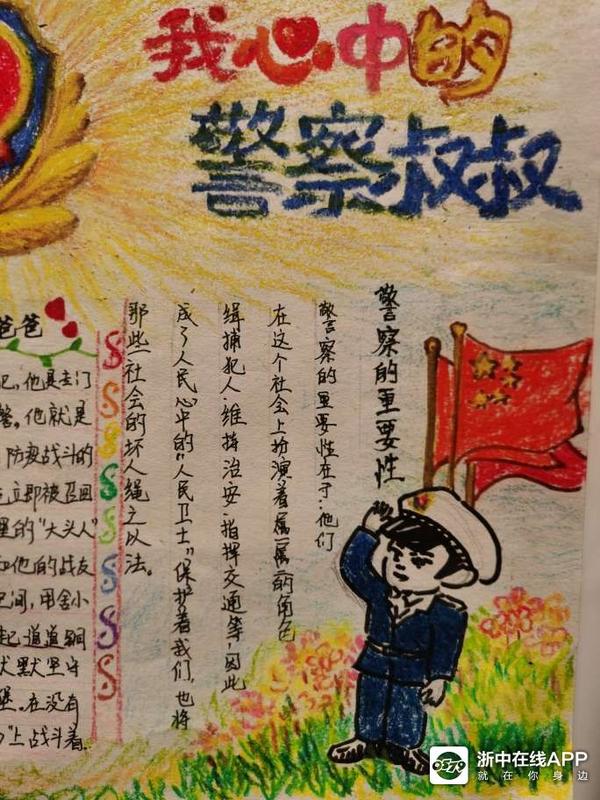 我心中的
警察叔叔
警察的重要性
警察的重要性在于:他们
在这个社会上扮演着属一属二的角色
缉捕犯人、维持治安、指挥交通等,因此
成了人民心中的"人民卫士"保护着我们,也将
那些社会的坏人绳之以法。
爸爸
他是去门
警。他就是
防疫战斗的
立即被召回
里的"大头人"
和他的战友
间,用舍小
起道道铜
默默坚守
堡。在没有
"上战斗着.
浙中在线APP
就在你身边